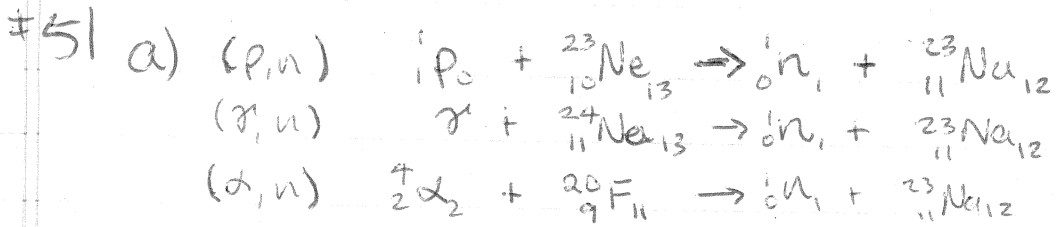 #51 a) (p,n) ¹₁p₀ + ²³₁₀Ne₁₃ → ¹₀n₁ + ²³₁₁Na₁₂
(γ,n) γ + ²⁴₁₁Na₁₃ → ¹₀n₁ + ²³₁₁Na₁₂
(α,n) ⁴₂α₂ + ²⁰₉F₁₁ → ¹₀n₁ + ²³₁₁Na₁₂